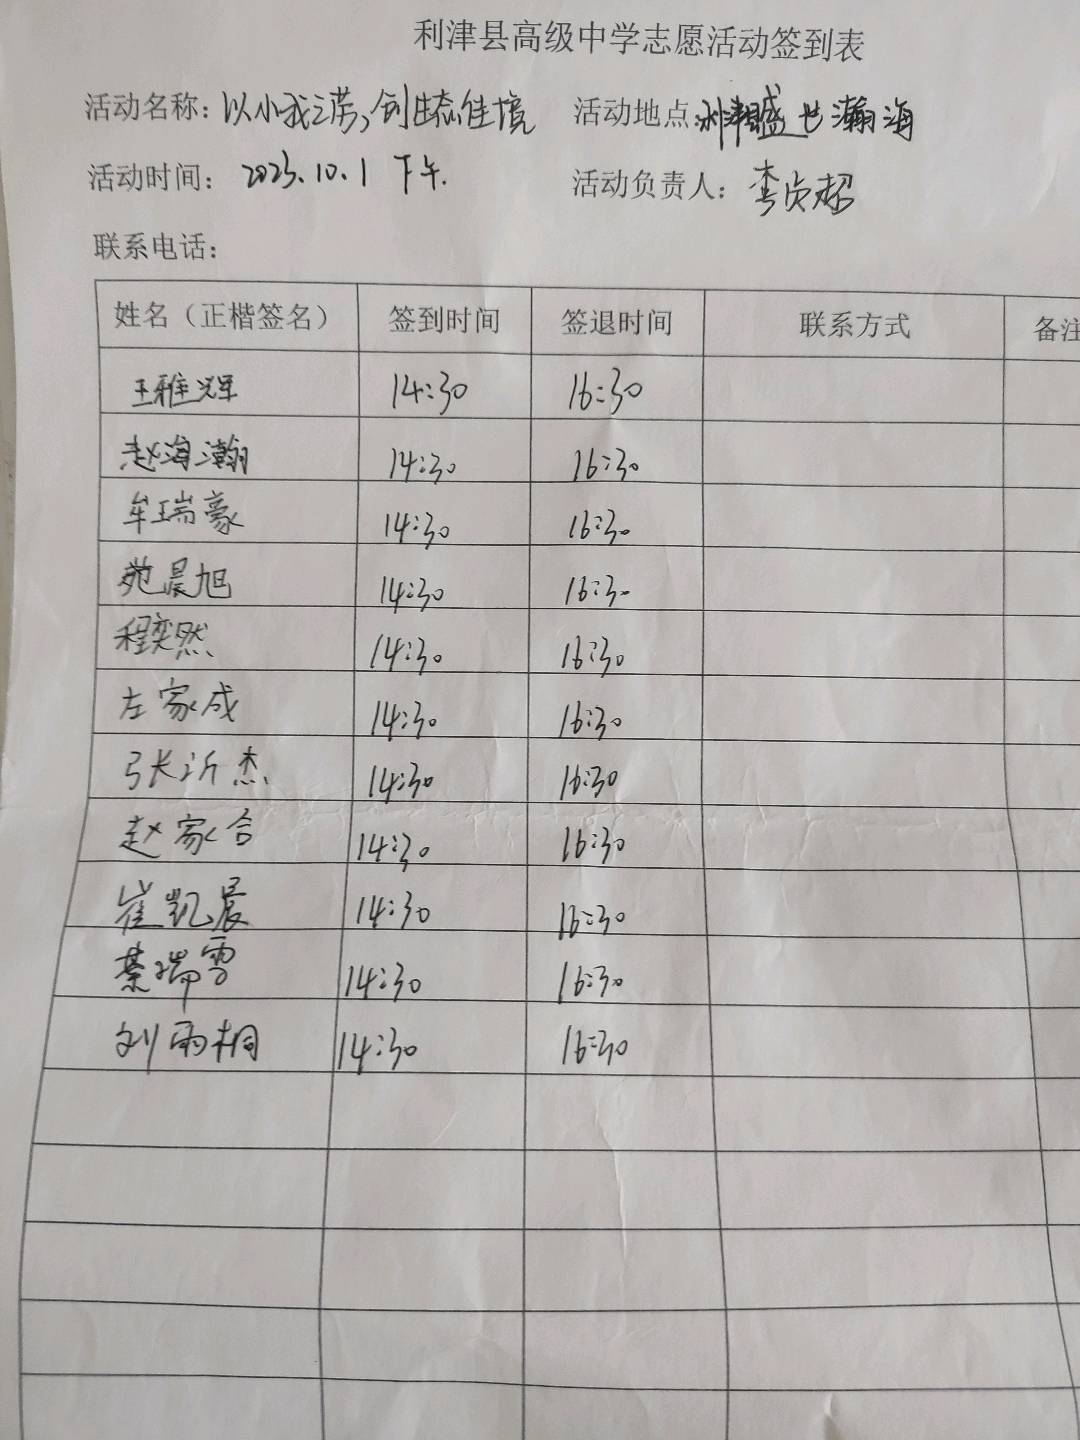 利津县高级中学志愿活动签到表
活动名称：以小我之劳，创生态佳境 活动地点：利津盛世瀚海
活动时间：2023.10.1 下午. 活动负责人：李贞超
联系电话：
姓名（正楷签名） 签到时间 签退时间 联系方式 备注
王雅浑 14:30 16:30
赵海瀚 14:30 16:30
牟瑞豪 14:30 16:30
苑晨旭 14:30 16:30
程奕然 14:30 16:30
左家成 14:30 16:30
张沂杰 14:30 16:30
赵家合 14:30 16:30
崔凯晨 14:30 16:30
綦瑞雪 14:30 16:30
刘雨桐 14:30 16:30